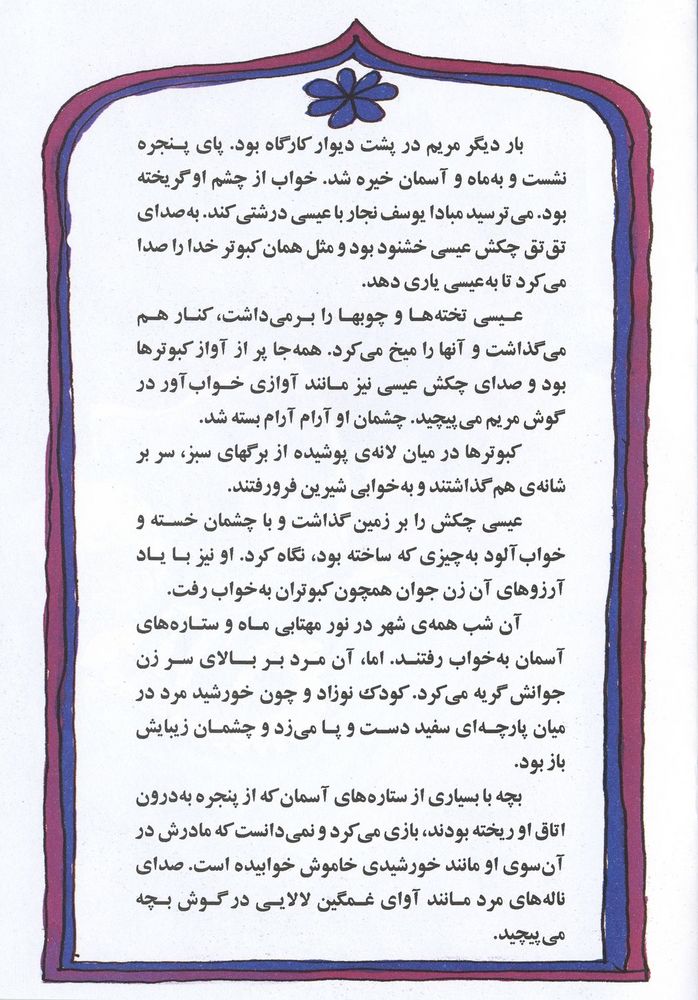 بار دیگر مریم در پشت دیوار کارگاه بود. پای پنجره
نشست و به‌ماه و آسمان خیره شد. خواب از چشم او گریخته
بود. می‌ترسید مبادا یوسف نجار با عیسی درشتی کند. به‌صدای
تق‌تق چکش عیسی خشنود بود و مثل همان کبوتر خدا را صدا
می‌کرد تا به‌عیسی یاری دهد.
عیسی تخته‌ها و چوبها را برمی‌داشت، کنار هم
می‌گذاشت و آنها را میخ می‌کرد. همه‌جا پر از آواز کبوترها
بود و صدای چکش عیسی نیز مانند آوازی خواب‌آور در
گوش مریم می‌پیچید. چشمان او آرام آرام بسته شد.
کبوترها در میان لانه‌ی پوشیده از برگهای سبز، سر بر
شانه‌ی هم گذاشتند و به‌خوابی شیرین فرورفتند.
عیسی چکش را بر زمین گذاشت و با چشمان خسته و
خواب‌آلود به‌چیزی که ساخته بود، نگاه کرد. او نیز با یاد
آرزوهای آن زن جوان همچون کبوتران به‌خواب رفت.
آن شب همه‌ی شهر در نور مهتابی ماه و ستاره‌های
آسمان به‌خواب رفتند. اما، آن مرد بر بالای سر زن
جوانش گریه می‌کرد. کودک نوزاد و چون خورشید مرد در
میان پارچه‌ای سفید دست و پا می‌زد و چشمان زیبایش
باز بود.
بچه با بسیاری از ستاره‌های آسمان که از پنجره به‌درون
اتاق او ریخته بودند، بازی می‌کرد و نمی‌دانست که مادرش در
آن‌سوی او مانند خورشیدی خاموش خوابیده است. صدای
ناله‌های مرد مانند آوای غمگین لالایی در گوش بچه
می‌پیچید.